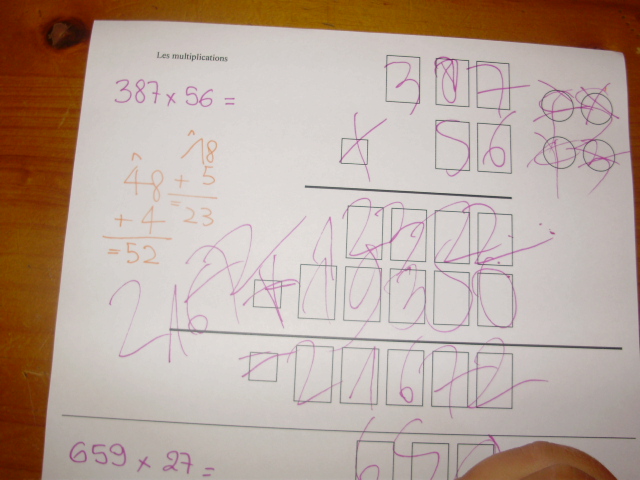 Les multiplications
387 x 56 =
387
x 56
18
+ 5
= 23
48
+ 4
= 52
2322
+ 19350
= 21672
2167
659 x 27 =